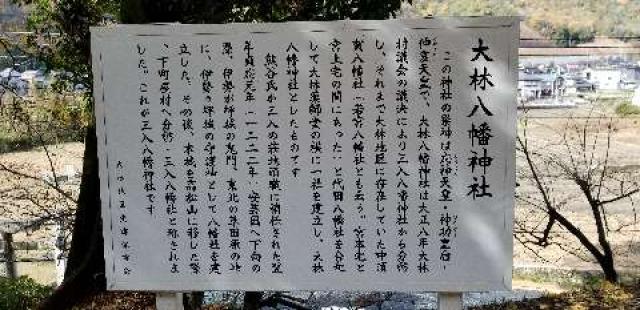 大林八幡神社
この神社の祭神は応神天皇・神功皇后・
仲哀天皇で、大林八幡神社は大正八年大林
村議会の議決により三入八幡神社から分祠
し、それまで大林地区に存在していた中須
賀八幡社(若宮八幡社とも云う。宮本宅と
宮上宅の間にあった)と代田八幡社を合祀
して大林薬師堂の横に一社を建立し、大林
八幡神社としたものです
熊谷氏が三入の荘地頭職に補任された翌
年貞応元年(一二二二年)安芸国へ下向の
際、伊勢が坪城の鬼門、東北の
に、伊勢が坪城の守護社として八幡社を建
立した。その後、本城を高松山に移した際
、下町屋村へ分祠、三入八幡社と称されま
した。これが三入八幡神社です